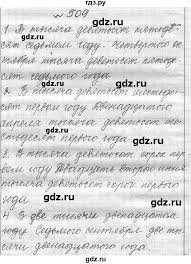 гдз.ру
№ 509
1. В тысяча девятьсот пятьде-
сят седьмом году. Четвёртого ок-
тября тысяча девятьсот пятьде-
сят седьмого года.
2. В тысяча девятьсот шестьде-
сят первом году. Двенадцатого
апреля тысяча девятьсот шес-
тьдесят первого года.
3. В тысяча девятьсот сорок пер-
вом году. Двадцать второго июня
тысяча девятьсот сорок первого
года.
4. В две тысячи двенадцатом
году. Седьмого сентября две ты-
сячи двенадцатого года.
gdz.ru
gdz.ru
gdz.ru
gdz.ru
gdz.ru
gdz.ru
gdz.ru
gdz.ru